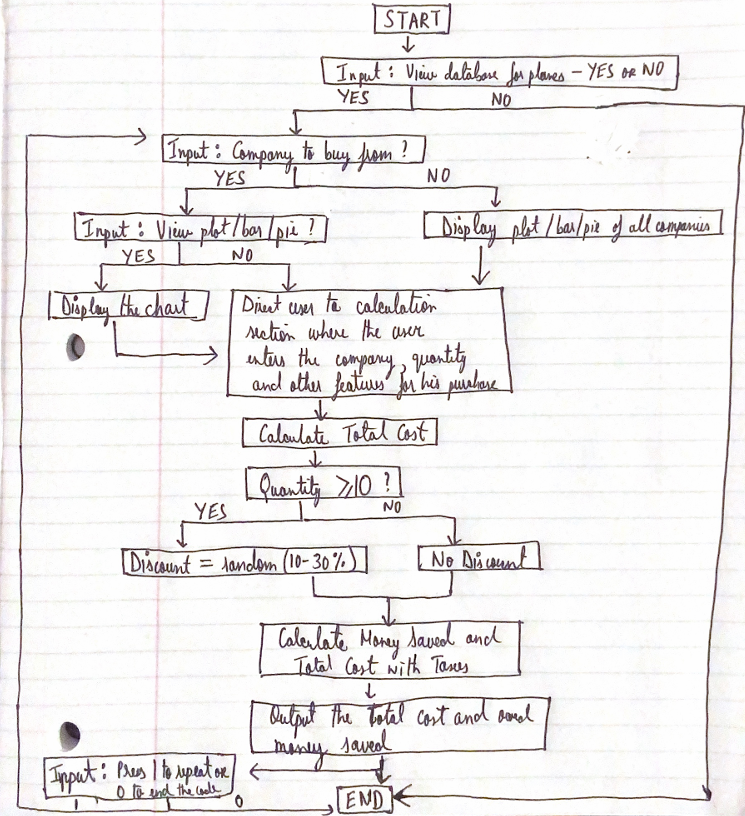 START
Input: View database for planes - YES or NO
YES NO
Input: Company to buy from?
YES NO
Input: View plot/bar/pie?
Display plot/bar/pie of all companies
YES NO
Display the chart
Direct user to calculation
section where the user
enters the company, quantity
and other features for his purchase
Calculate Total Cost
Quantity ⩾10?
YES NO
Discount = random (10-30%)
No Discount
Calculate Money Saved and
Total Cost with Taxes
Output the total cost and
money saved
Input: Press 1 to repeat or
0 to end the code
1 0
END